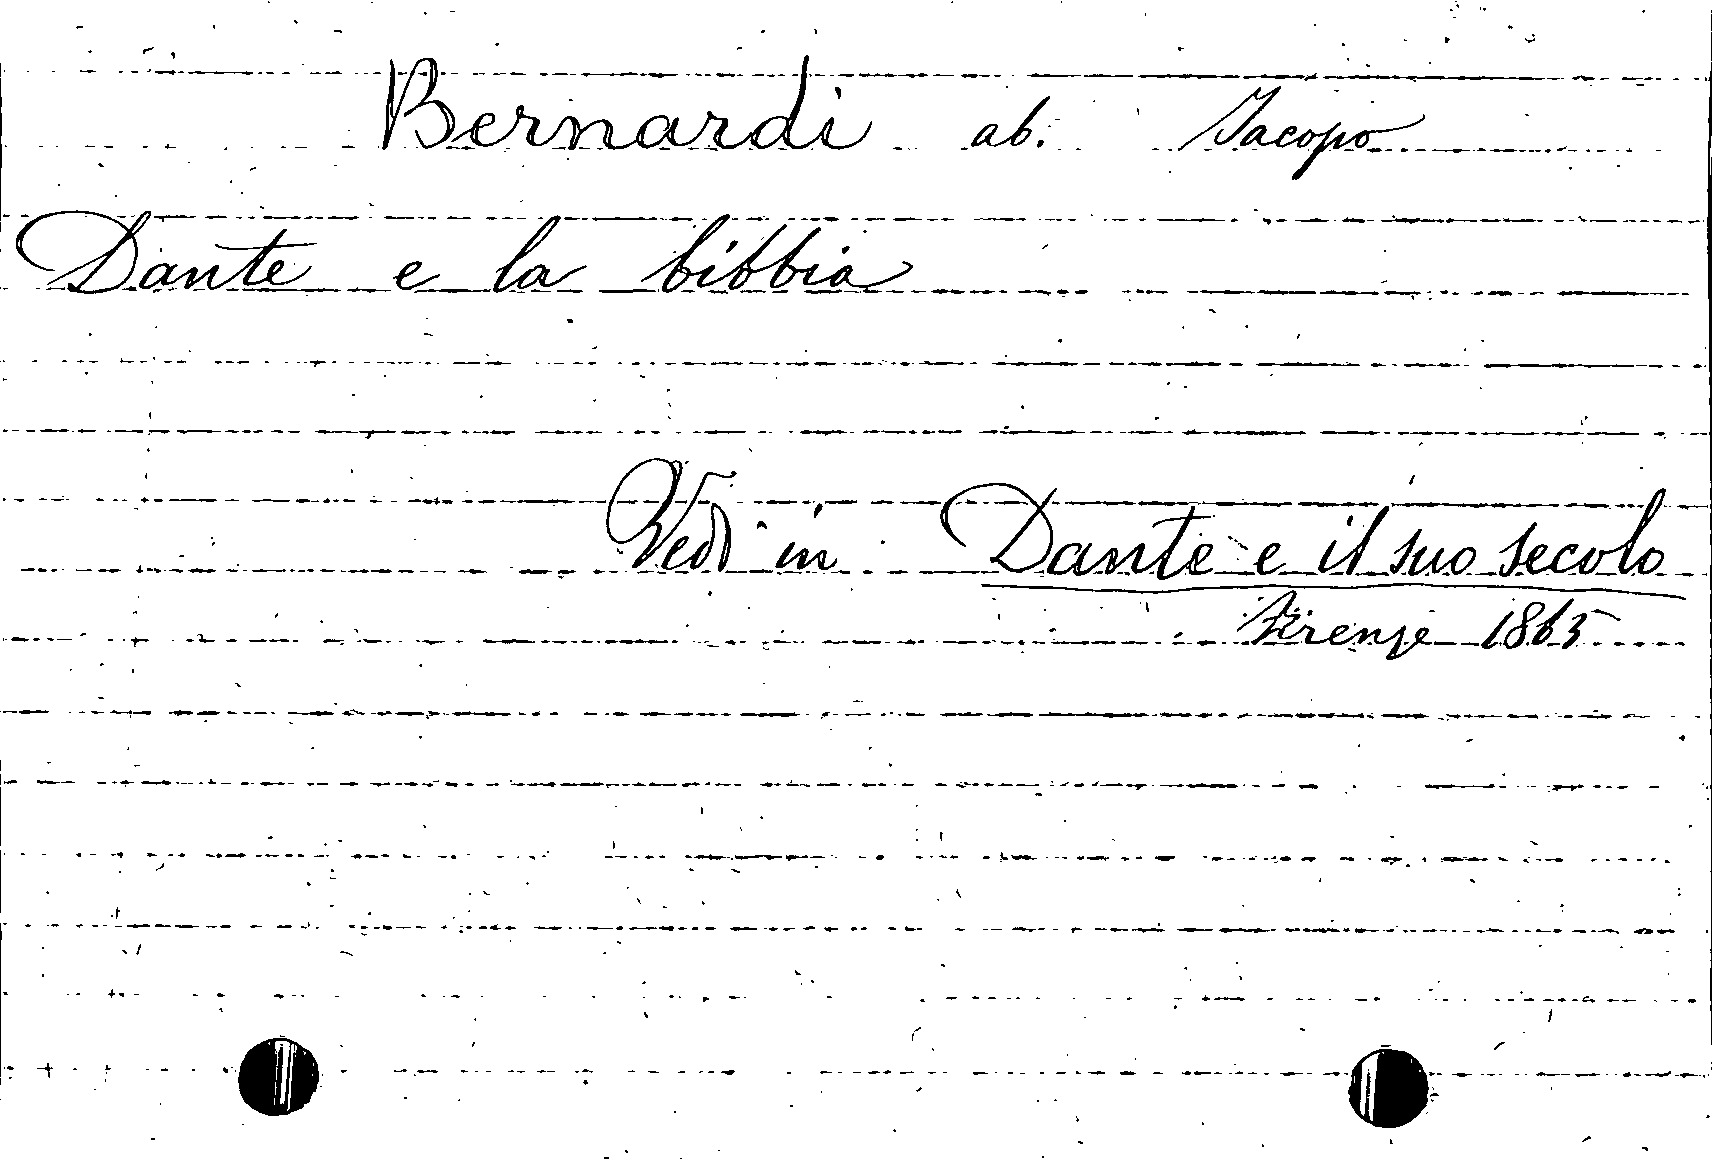 Bernardi ab. Jacopo
Dante e la bibbia
Vedi in Dante e il suo secolo
Firenze 1865